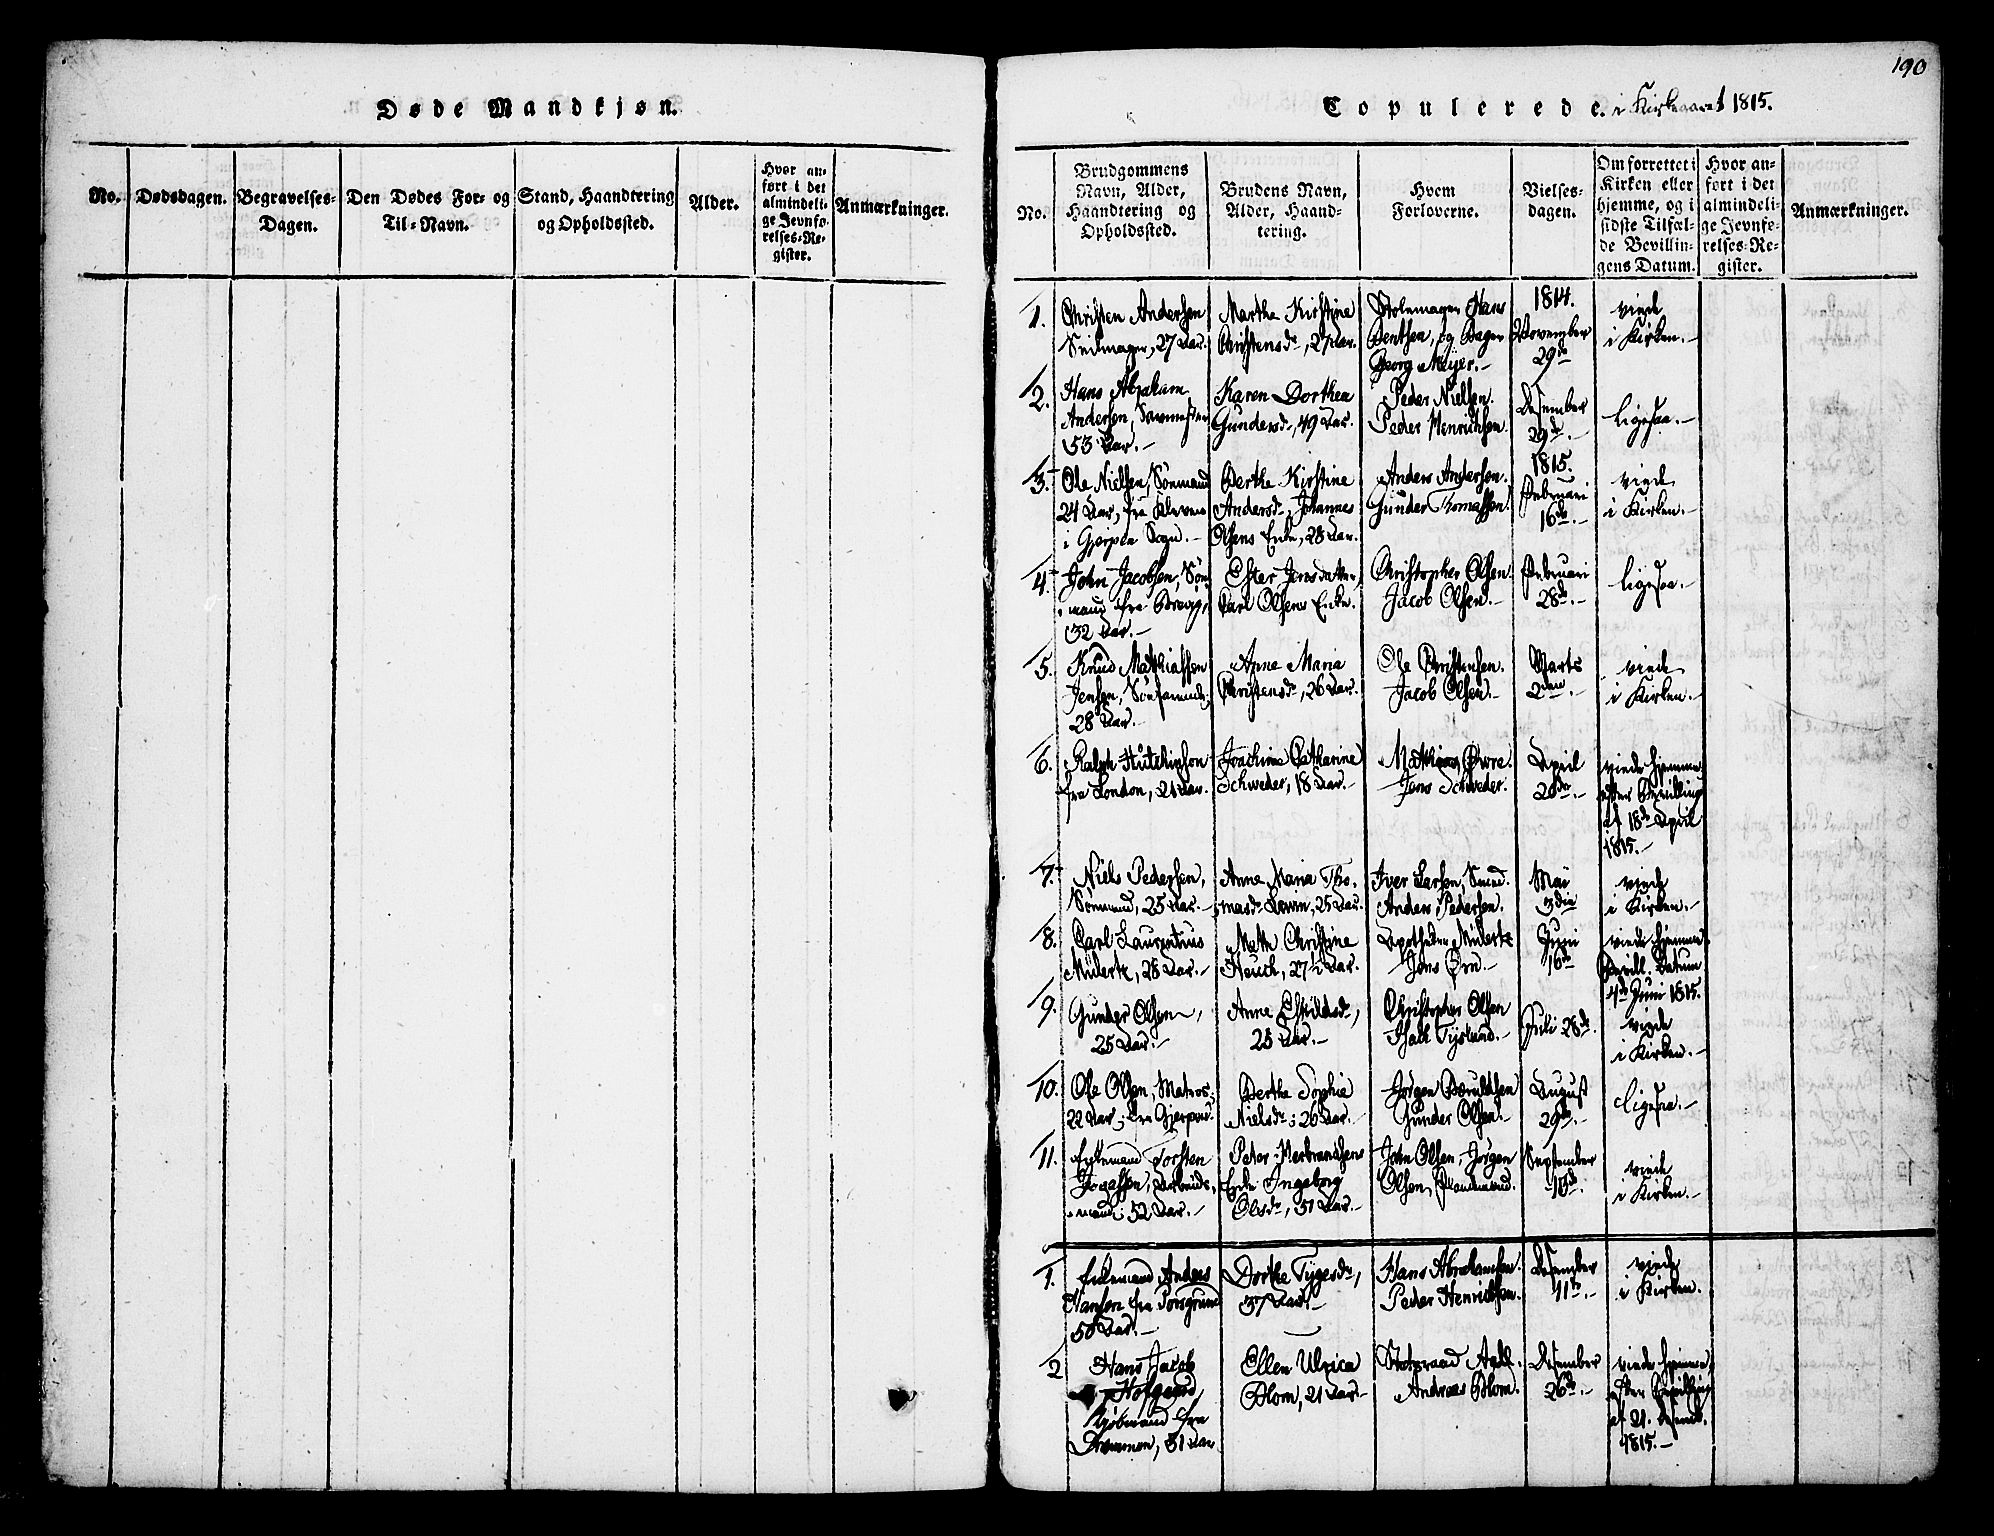 190
Døde Mandkjøn.
No.
Dødsdagen.
Begravelses-
Dagen.
Den Dødes For- og
Til-Navn.
Stand, Haandtering
og Opholdssted.
Alder.
Hvor an-
ført i det
almindeli-
ge Jevnfø-
relses-Re-
gister.
Anmærkninger.
Copulerede. i Kirkeaaret 1815.
No.
Brudgommens
Navn, Alder,
Haandtering og
Opholdssted.
Brudens Navn,
Alder, Haand-
tering.
Hvem
Forloverne.
Vielses-
dagen.
Om forrettet i
Kirken eller
hjemme, og i
sidste Tilfæl-
de Bevillin-
gens Datum.
Hvor an-
ført i det
almindeli-
ge Jevnfø-
relses-Re-
gister.
Anmærkninger.
1.
Christen Andersen
Seilmager, 27 Aar.
Marthe Kirstine
Christensdr, 27 Aar.
Stolemager Hans
Bentsen, og Bager
Georg Meyer.-
1814.
November
29de
viede
i Kirken.-
2.
Hans Abraham
Andersen,
53 Aar.-
Karen Dorthea
Gundersdr, 49 Aar.
Peder Nielsen.
Peder Henrichsen.
Desember
29de.-
ligesaa.-
3.
Ole Nielsen, Sømand
24 Aar, fra Kleven
i Gjerpen Sogn.-
Berthe Kirstine
Andersdr, Johannes
Olsens Enke, 28 Aar.
Anders Andersen.
Gunder Thomassen.
1815.
Februari
16de.-
viede
i Kirken.-
4.
John Jacobsen, Søe-
mand fra Brevig,
32 Aar.-
Ester Jensdatter,
Carl Olsens Enke.
Christopher Olsen.
Jacob Olsen.-
Februari
28de.-
ligesaa.-
5.
Knud Mathiassen
Jensen,
28 Aar.-
Anne Maria
Christensdr, 26 Aar.
Ole Christensen.
Jacob Olsen.-
Marts
2den.-
viede
i Kirken.-
6.
Ralph Hutchinson
fra London, 21 Aar.
Joachime Catharine
Schweder, 18 Aar.-
Mathias Øvre.
Jens Schweder.
April
20de.-
viede hjemme
efter Bevilling
af 18de April
1815.-
7.
Niels Pedersen,
Sømand, 25 Aar.-
Anne Maria Tho-
masdr 25 Aar.
Iver Larsen, Smed.
Anders Pedersen.
Mai
3die
viede
i Kirken.-
8.
Carl Laurentius
Mülertz, 28 Aar.-
Meth Christine
Heuch, 27½ Aar.
Apotheker Mülertz
Jens Ørn.-
Juni
16de
viede hjemme
Bevill. Datum
4de Juni 1815.
9.
Gunder Olsen,
25 Aar.-
Anne Eskildsdr,
25 Aar.-
Christopher Olsen
Isack
Juli 28de.
viede
i Kirken.-
10.
Ole Olsen, Matros,
22 Aar, fra Gjerpen.
Berthe Sophie
Nielsdr; 26 Aar.-
Jørgen
Gunder Olsen.-
August
29de.-
ligesaa.-
11.
Enkemand Torsten
Arbeids-
mand; 52 Aar.-
Peter Herbrandsens
Enke Ingeborg
Olsdr, 51 Aar.-
John Olsen, Jørgen
Olsen,
September
viede
i Kirken.-
1.
Enkemand Anders
Hansen fra Porsgrund
50 Aar.-
Dorthe Tygesdr,
37 Aar.-
Hans Abrahamsen.
Peder Henrichsen.
Desember
11te.-
viede
i Kirken.
2
Hans Jacob
Hofgaard,
Kjøbmand fra
Drammen, 31 Aar
Ellen Ulrica
Blom, 21 Aar-
Statsraad Aall.
Andreas Blom.
Desember
26de.-
viede hjemme,
efter Bevilling
af 21. Desemb.
1815.-